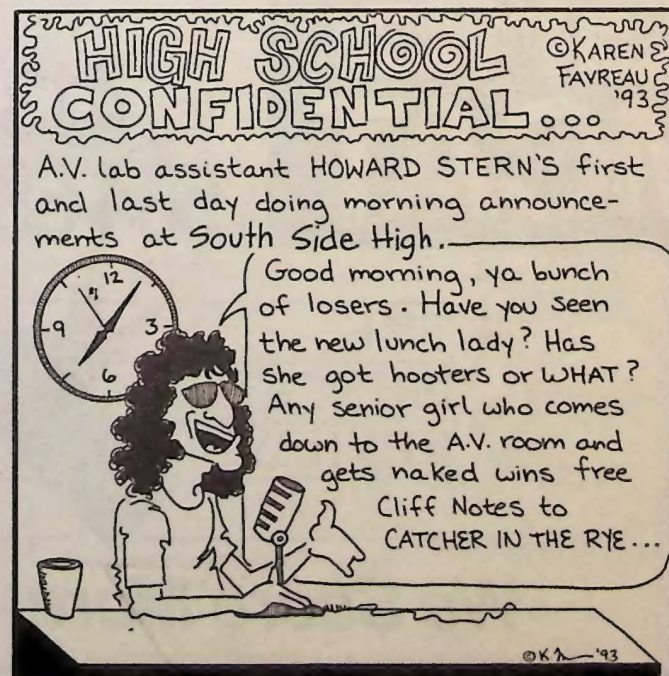 HIGH SCHOOL
CONFIDENTIAL...
©KAREN
FAVREAU
'93
A.V. lab assistant HOWARD STERN'S first
and last day doing morning announce-
ments at South Side High.
12
9
3
6
Good morning, ya bunch
of losers. Have you seen
the new lunch lady? Has
she got hooters or WHAT?
Any senior girl who comes
down to the A.V. room and
gets naked wins free
Cliff Notes to
CATCHER IN THE RYE...
©K '93